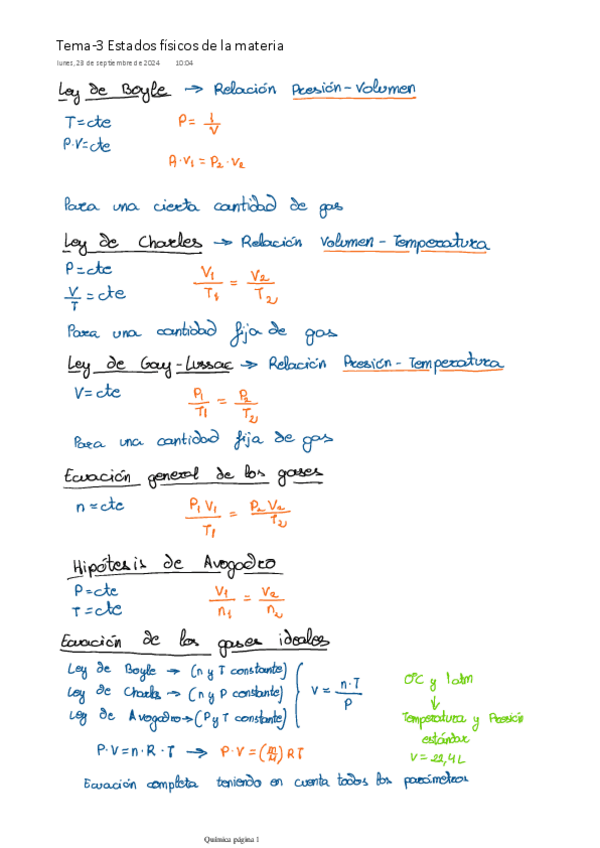 Tema-3 Estados físicos de la materia
lunes, 23 de septiembre de 2024 10:04
Ley de Boyle → Relación Presión-Volumen
T=cte P= 1/V
P·V=cte
P₁·V₁ = P₂·V₂
Para una cierta cantidad de gas
Ley de Charles → Relación Volumen - Temperatura
P=cte
V/T = cte V₁/T₁ = V₂/T₂
Para una cantidad fija de gas
Ley de Gay-Lussac → Relación Presión - Temperatura
V=cte P₁/T₁ = P₂/T₂
Para una cantidad fija de gas
Ecuación general de los gases
n=cte P₁V₁/T₁ = P₂V₂/T₂
Hipótesis de Avogadro
P=cte
T=cte V₁/n₁ = V₂/n₂
Ecuación de los gases ideales
Ley de Boyle → (n y T constante)
Ley de Charles → (n y P constante) V = n·T/P
Ley de Avogadro → (P y T constante)
0°C y 1atm
↓
Temperatura y Presión
estándar
V=22,4L
P·V=n·R·T → P·V=(m/M)RT
Ecuación completa teniendo en cuenta todos los parámetros
Química página 1